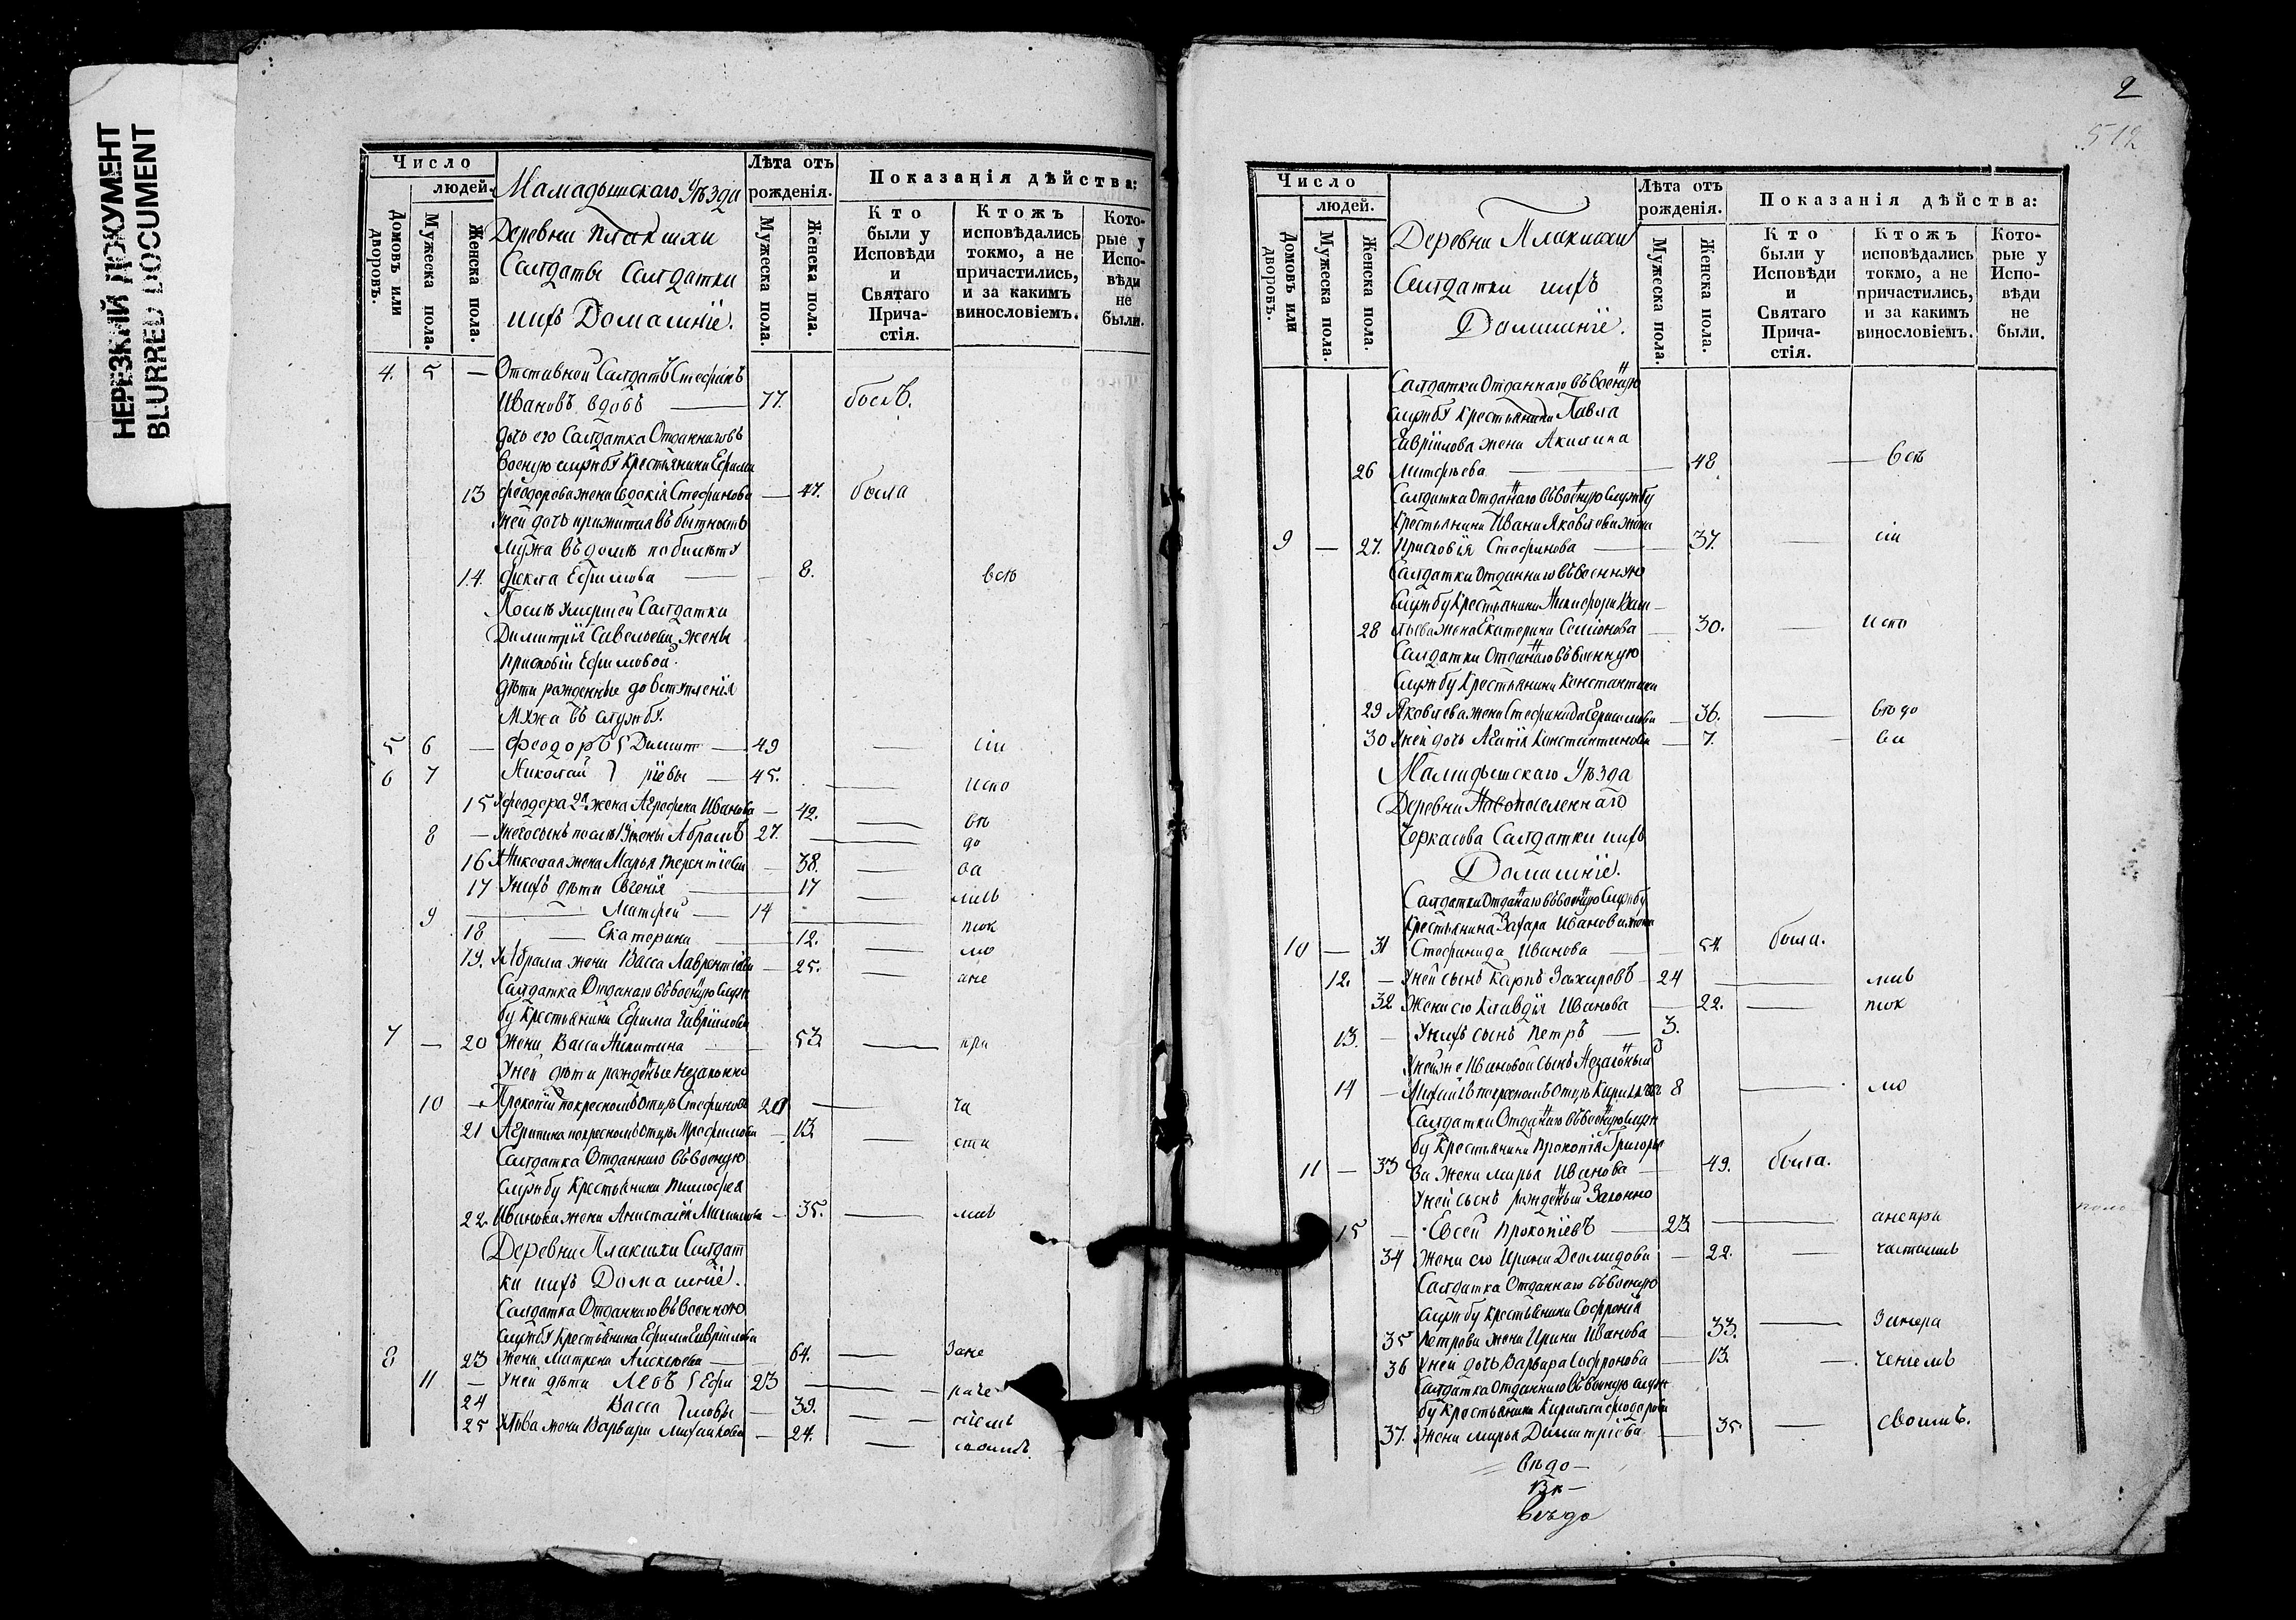 НЕРЕЗКИЙ ДОКУМЕНТ
BLURRED DOCUMENT
Число
людей.
Домовъ или дворовъ.
Мужеска пола.
Женска пола.
Мамадышскаго Уѣзда
Деревни Плакихи
Салдаты Салдатки
ихъ Домашніе.
Лѣта отъ рожденія.
Мужеска пола.
Женска пола.
Показанія дѣйства:
Кто были у Исповѣди и Святаго Причастія.
Ктожъ исповѣдались токмо, а не причастились, и за какимъ винословіемъ.
Которые у Исповѣди не были.
4. 5 — Отставной Салдатъ Стефанъ
Ивановъ вдовъ — 77. былъ.
дочь его Салдатка Отданнаго въ
военую службу Крестьянина Ефима
13 Феодорова жена Евдокія Стефанова — 47. была
У ней дочь прижитая въ бытность
мужа въ домѣ по билету
14. Фекла Ефимова — 8. всѣ
После умершей Салдатки
Димитрія Савельева жены
Присковіи Ефимовой.
дѣти рожденные до вступленія
Мужа въ службу.
5 6 — Феодоръ Димит — 49 — сіи
6 7 Николай ріевы — 45. — испо
15 У Феодора 2я жена Агрофена Иванова — 42. — вѣ
8 — У него сынъ после 1й жены Абрамъ 27. — до
16 У Николая жена Марья Терентіева — 38. — ва
17 У нихъ дѣти Евгенія — 17 — лись
9 — Матфей — 14 — ток
18 — Екатерина — 12. — мо
19. У Абрама жена Васса Лаврентіева — 25. — ане
Салдатка Отданаго въ военую служ
бу Крестьянина Ефима Гаврилова
7 — 20 Жена Васса Никитина — 53. — при
У ней дѣти рожденые незаконно
10 — Прокопій по крестномъ Отцѣ Стефановъ 20 — ча
21 Агрипина по крестномъ Отцѣ Трофимова — 13. — сти
Салдатка Отданнаго въ военую
службу Крестьянина Тимофея
22. Иванова жена Анастасія — 35. — лись
Деревни Плакихи Салдат
ки ихъ Домашніе.
Салдатка Отданнаго въ Военною
службу Крестьянина Ефима Гаврилова
8 23 жена Матрена Алексеева — 64. — Зане
11 — У ней дѣти Левъ Ефи 23 — раче
24 Васса мовы — 39. — ніемъ
25 У Льва жена Варвара Михайлова — 24. — своимъ.
2
512
Число
людей.
Домовъ или дворовъ.
Мужеска пола.
Женска пола.
Деревни Плакихи
Салдатки ихъ
Домашніе.
Лѣта отъ рожденія.
Мужеска пола.
Женска пола.
Показанія дѣйства:
Кто были у Исповѣди и Святаго Причастія.
Ктожъ исповѣдались токмо, а не причастились, и за какимъ винословіемъ.
Которые у Исповѣди не были.
Салдатка Отданнаго въ военую
службу Крестьянина Павла
Гаврілова жена Акилина
26 Матфеева — 48 — всѣ
Салдатка Отданаго въ военую Службу
Крестьянина Ивана Яковлева жена
9 — 27. Присковія Стефанова — 37. — сіи
Салдатка Отданнаго въ военною
Службу Крестьянина Никифора Васи-
28 льева жена Екатерина Семіонова — 30. — испо
Салдатка Отданаго въ военную
Службу Крестьянина Константина
29 Яковлева жена Стефанида — 36. — вѣдо
30 У ней дочь Агапія Константинова — 7. — ва
Мамадышскаго Уѣзда
Деревни Новопоселеннаго
Черкасова Салдатки ихъ
Домашніе.
Салдатка Отданаго въ военую Службу
Крестьянина Захара Иванова жена
10 — 31 Стефанида Иванова — 54 была.
12. — У ней сынъ Карпъ Захаровъ — 24 — лись
32 Жена его Клавдія Иванова — 22. — ток
13. — У нихъ сынъ Петръ — 3.
У ней же Ивановой сынъ Незаконый
14 — по крестномъ Отцѣ 8 — мо
Салдатка Отданаго въ военую служ
бу Крестьянина Прокопія Григорье
11 — 33 ва жена Марья Иванова — 49. была.
У ней сынъ рожденый Законно
15 — Евсей Прокопіевъ — 23 — анепри
34 Жена его Ирина Деомидова — 22. — частились
Салдатка Отданнаго въ военую
службу Крестьянина Софронія
35 Петрова жена Ирина Иванова — 33. — Занера
36 У ней дочь Варвара Софронова — 13. — ченіемъ
Салдатка Отданнаго въ военую служ
бу Крестьянина Кирилла Феодорова
37. Жена Марья Димитріева — 35. — своимъ.
вѣдо —